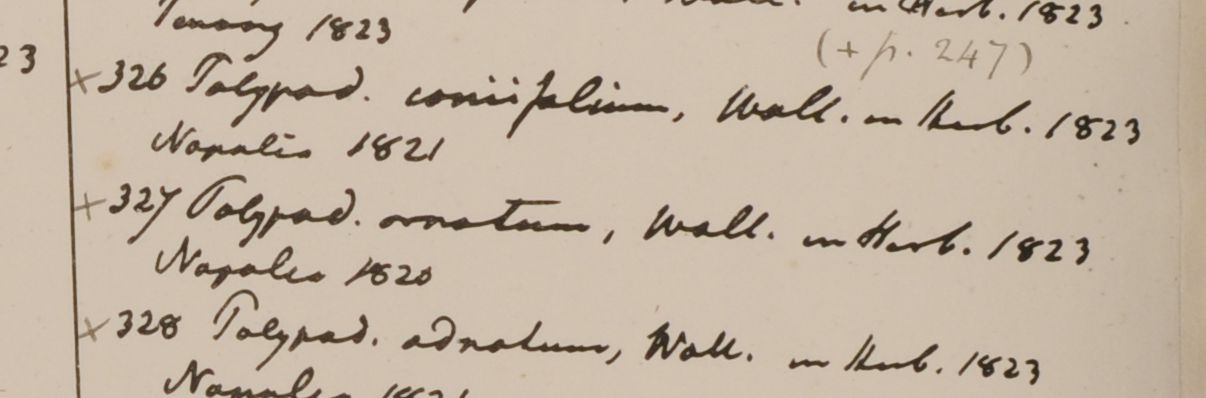 Wall. in Herb. 1823
Penang 1823
23
(+ p. 247)
× 326 Polypod. coniifolium, Wall. in Herb. 1823
Napalia 1821
+ 327 Polypod. ornatum, Wall. in Herb. 1823
Napalia 1820
× 328 Polypod. adnatum, Wall. in Herb. 1823
Napalia 1821